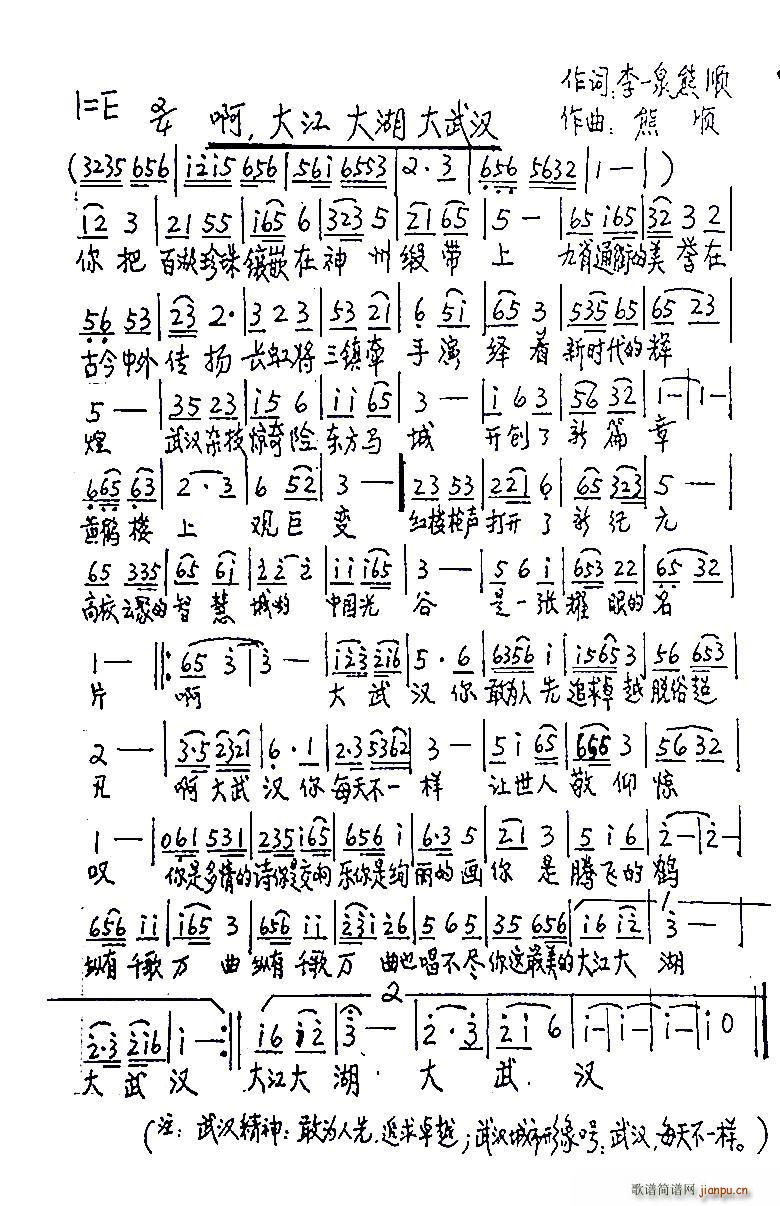 作词:李一泉 熊顺
1=E 2/4 啊,大江大湖大武汉
作曲:熊顺
(3235 656 | i2i5 656 | 56i 6553 | 2·3 | 656 5632 | 1—)
i2 3 | 21 55 | i65 6 | 323 5 | 21 65 | 5 — | 65 i65 | 32 3 2
你把百湖珍珠镶嵌在神州缎带上 九省通衢的美誉在
56 53 | 23 2· | 3 2 3 | 53 21 | 6 5i | 65 3 | 535 65 | 65 23
古今中外传扬长虹将三镇牵手演绎着新时代的辉
5 — | 35 23 | i5 6 | ii 65 | 3 — | i 6 3 | 56 32 | 1 — | 1 —
煌 武汉杂技惊奇险东方马城 开创了新篇章
665 63 | 2·3 | 6 52 | 3 — | 23 53 | 221 6 | 65 323 | 5 —
黄鹤楼上观巨变 红楼枪声打开了新纪元
65 335 | 65 6i | 2 2 2 | iii65 | 3 — | 5 6 i | 653 22 | 65 32
高校云聚的智慧城的中国光谷 是一张耀眼的名
1 — |: 65 3 | 3 — | i23 2i6 | 5·6 | 6356 i | i565 3 | 56 653
片 啊 大武汉你敢为人先追求卓越脱俗超
2 — | 3·5 2321 | 6·1 | 2·3 5362 | 3 — | 5 i 65 | 665 3 | 56 32
凡 啊大武汉你每天不一样 让世人敬仰惊
1 — | 061 531 | 235 i65 | 656 i | 6·3 5 | 2i 3 | 5 i 6 | 2 — | 2 —
叹 你是多情的诗你是交响乐你是绚丽的画你是腾飞的鹤
656 ii | i65 3 | 656 ii | 23i26 | 5 65 | 35 656 | i6 i2 | 3 —
纵有千歌万曲纵有千歌万曲也唱不尽你这最美的大江大湖
2·3 2i6 | i — :| i6 i2 | 3 — | 2·3 | 2i 6 | i — | i — | i — | i 0 ||
大武汉 大江大湖大武汉
(注:武汉精神:敢为人先,追求卓越;武汉城市形象口号:武汉,每天不一样。)
歌谱简谱网
jianpu.cn